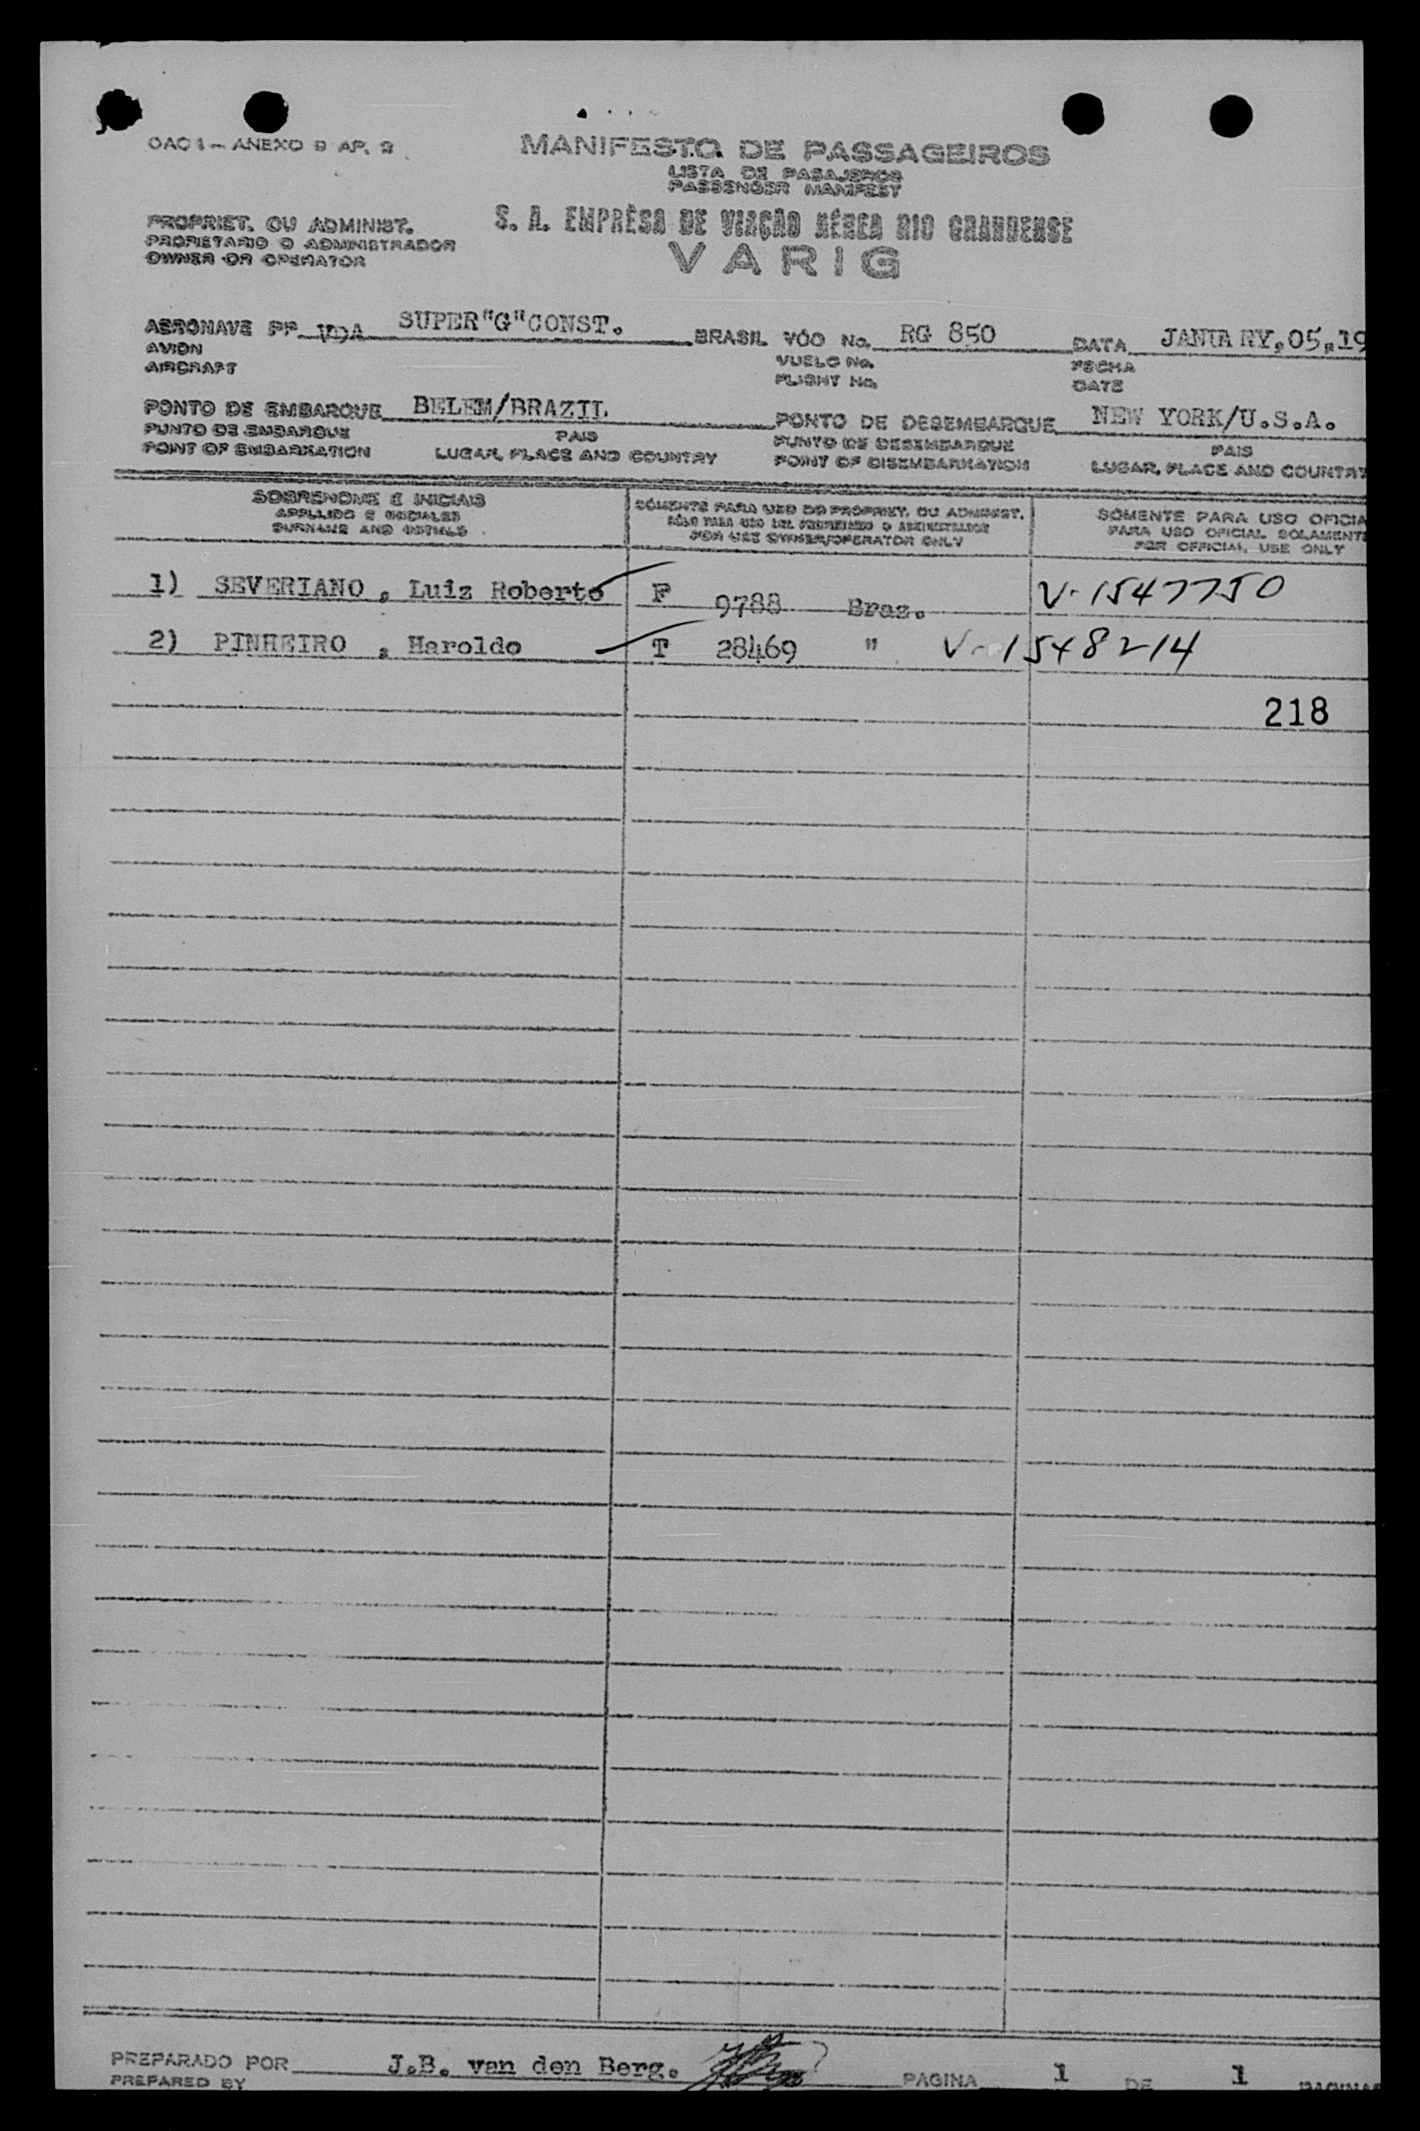 OACI - ANEXO 9 AP. 2
MANIFESTO DE PASSAGEIROS
LISTA DE PASAJEROS
PASSENGER MANIFEST
PROPRIET. OU ADMINIST.
PROPIETARIO O ADMINISTRADOR
OWNER OR OPERATOR
S. A. EMPRÊSA DE VIAÇÃO AÉREA RIO GRANDENSE
VARIG
AERONAVE PP VDA SUPER"G"CONST. BRASIL VÔO No. RG 850 DATA JANUARY,05,19
AVION VUELO No. FECHA
AIRCRAFT FLIGHT No. DATE
PONTO DE EMBARQUE BELEM/BRAZIL PONTO DE DESEMBARQUE NEW YORK/U.S.A.
PUNTO DE EMBARQUE PAIS PUNTO DE DESEMBARQUE PAIS
POINT OF EMBARKATION LUGAR, PLACE AND COUNTRY POINT OF DISEMBARKATION LUGAR, PLACE AND COUNTRY
SOBRENOME E INICIAIS SÓMENTE PARA USO DO PROPRIET. OU ADMINIST. SÓMENTE PARA USO OFICIA
APELLIDO E INICIALES SÓLO PARA USO DEL PROPIETARIO O ADMINISTRADOR PARA USO OFICIAL SOLAMENTE
SURNAME AND INITIALS FOR USE OWNER/OPERATOR ONLY FOR OFFICIAL USE ONLY
1) SEVERIANO , Luiz Roberto F 9788 Bras. V-1547750
2) PINHEIRO , Haroldo T 28469 " V-1548214
218
PREPARADO POR J.B. van den Berg. PAGINA 1 DE 1 PAGINAS
PREPARED BY